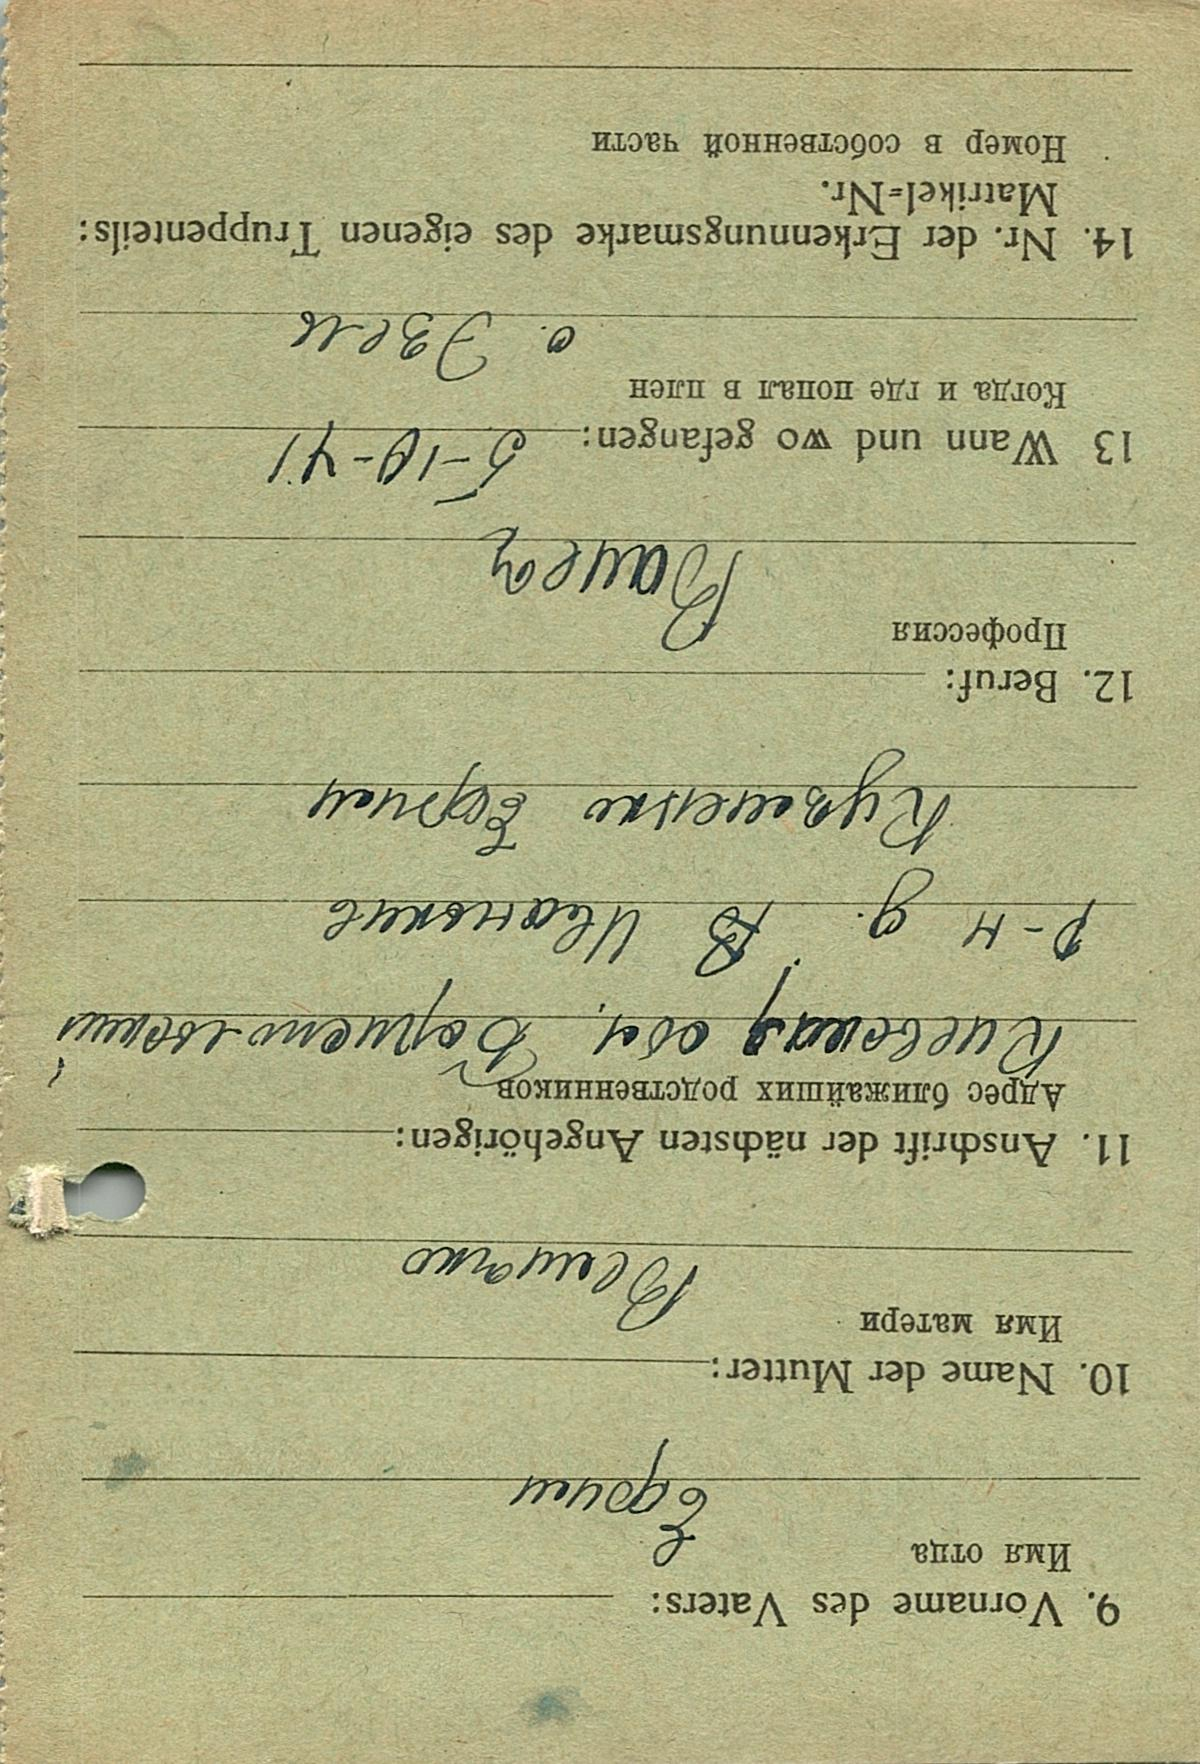 9. Vorname des Vaters:
Имя отца
Ефим
10. Name der Mutter:
Имя матери
11. Anschrift der nächsten Angehörigen:
Адрес ближайших родственников
Киевская обл.
р-н д. В Иваньков
Кузьменко Ефим
12. Beruf:
Профессия
13 Wann und wo gefangen: 5-10-41
Когда и где попал в плен
о. Эзель
14. Nr. der Erkennungsmarke des eigenen Truppenteils:
Matrikel=Nr.
Номер в собственной части